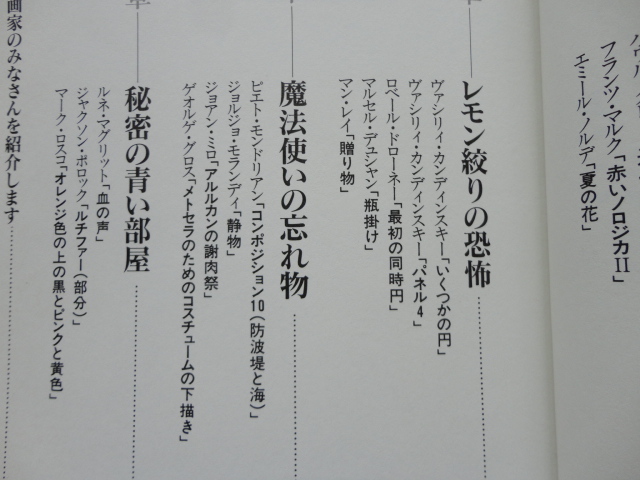 フランツ・マルク「赤いノロジカII」
エミール・ノルデ「夏の花」
レモン絞りの恐怖
ヴァシリィ・カンディンスキー「いくつかの円」
ヴァシリィ・カンディンスキー「パネル4」
ロベール・ドローネー「最初の同時円」
マルセル・デュシャン「瓶掛け」
マン・レイ「贈り物」
魔法使いの忘れ物
ピエト・モンドリアン「コンポジション10(防波堤と海)」
ジョルジョ・モランディ「静物」
ジョアン・ミロ「アルルカンの謝肉祭」
ゲオルゲ・グロス「メトセラのためのコスチュームの下描き」
秘密の青い部屋
ルネ・マグリット「血の声」
ジャクソン・ポロック「ルチファー(部分)」
マーク・ロスコ「オレンジ色の上の黒とピンクと黄色」
画家のみなさんを紹介します